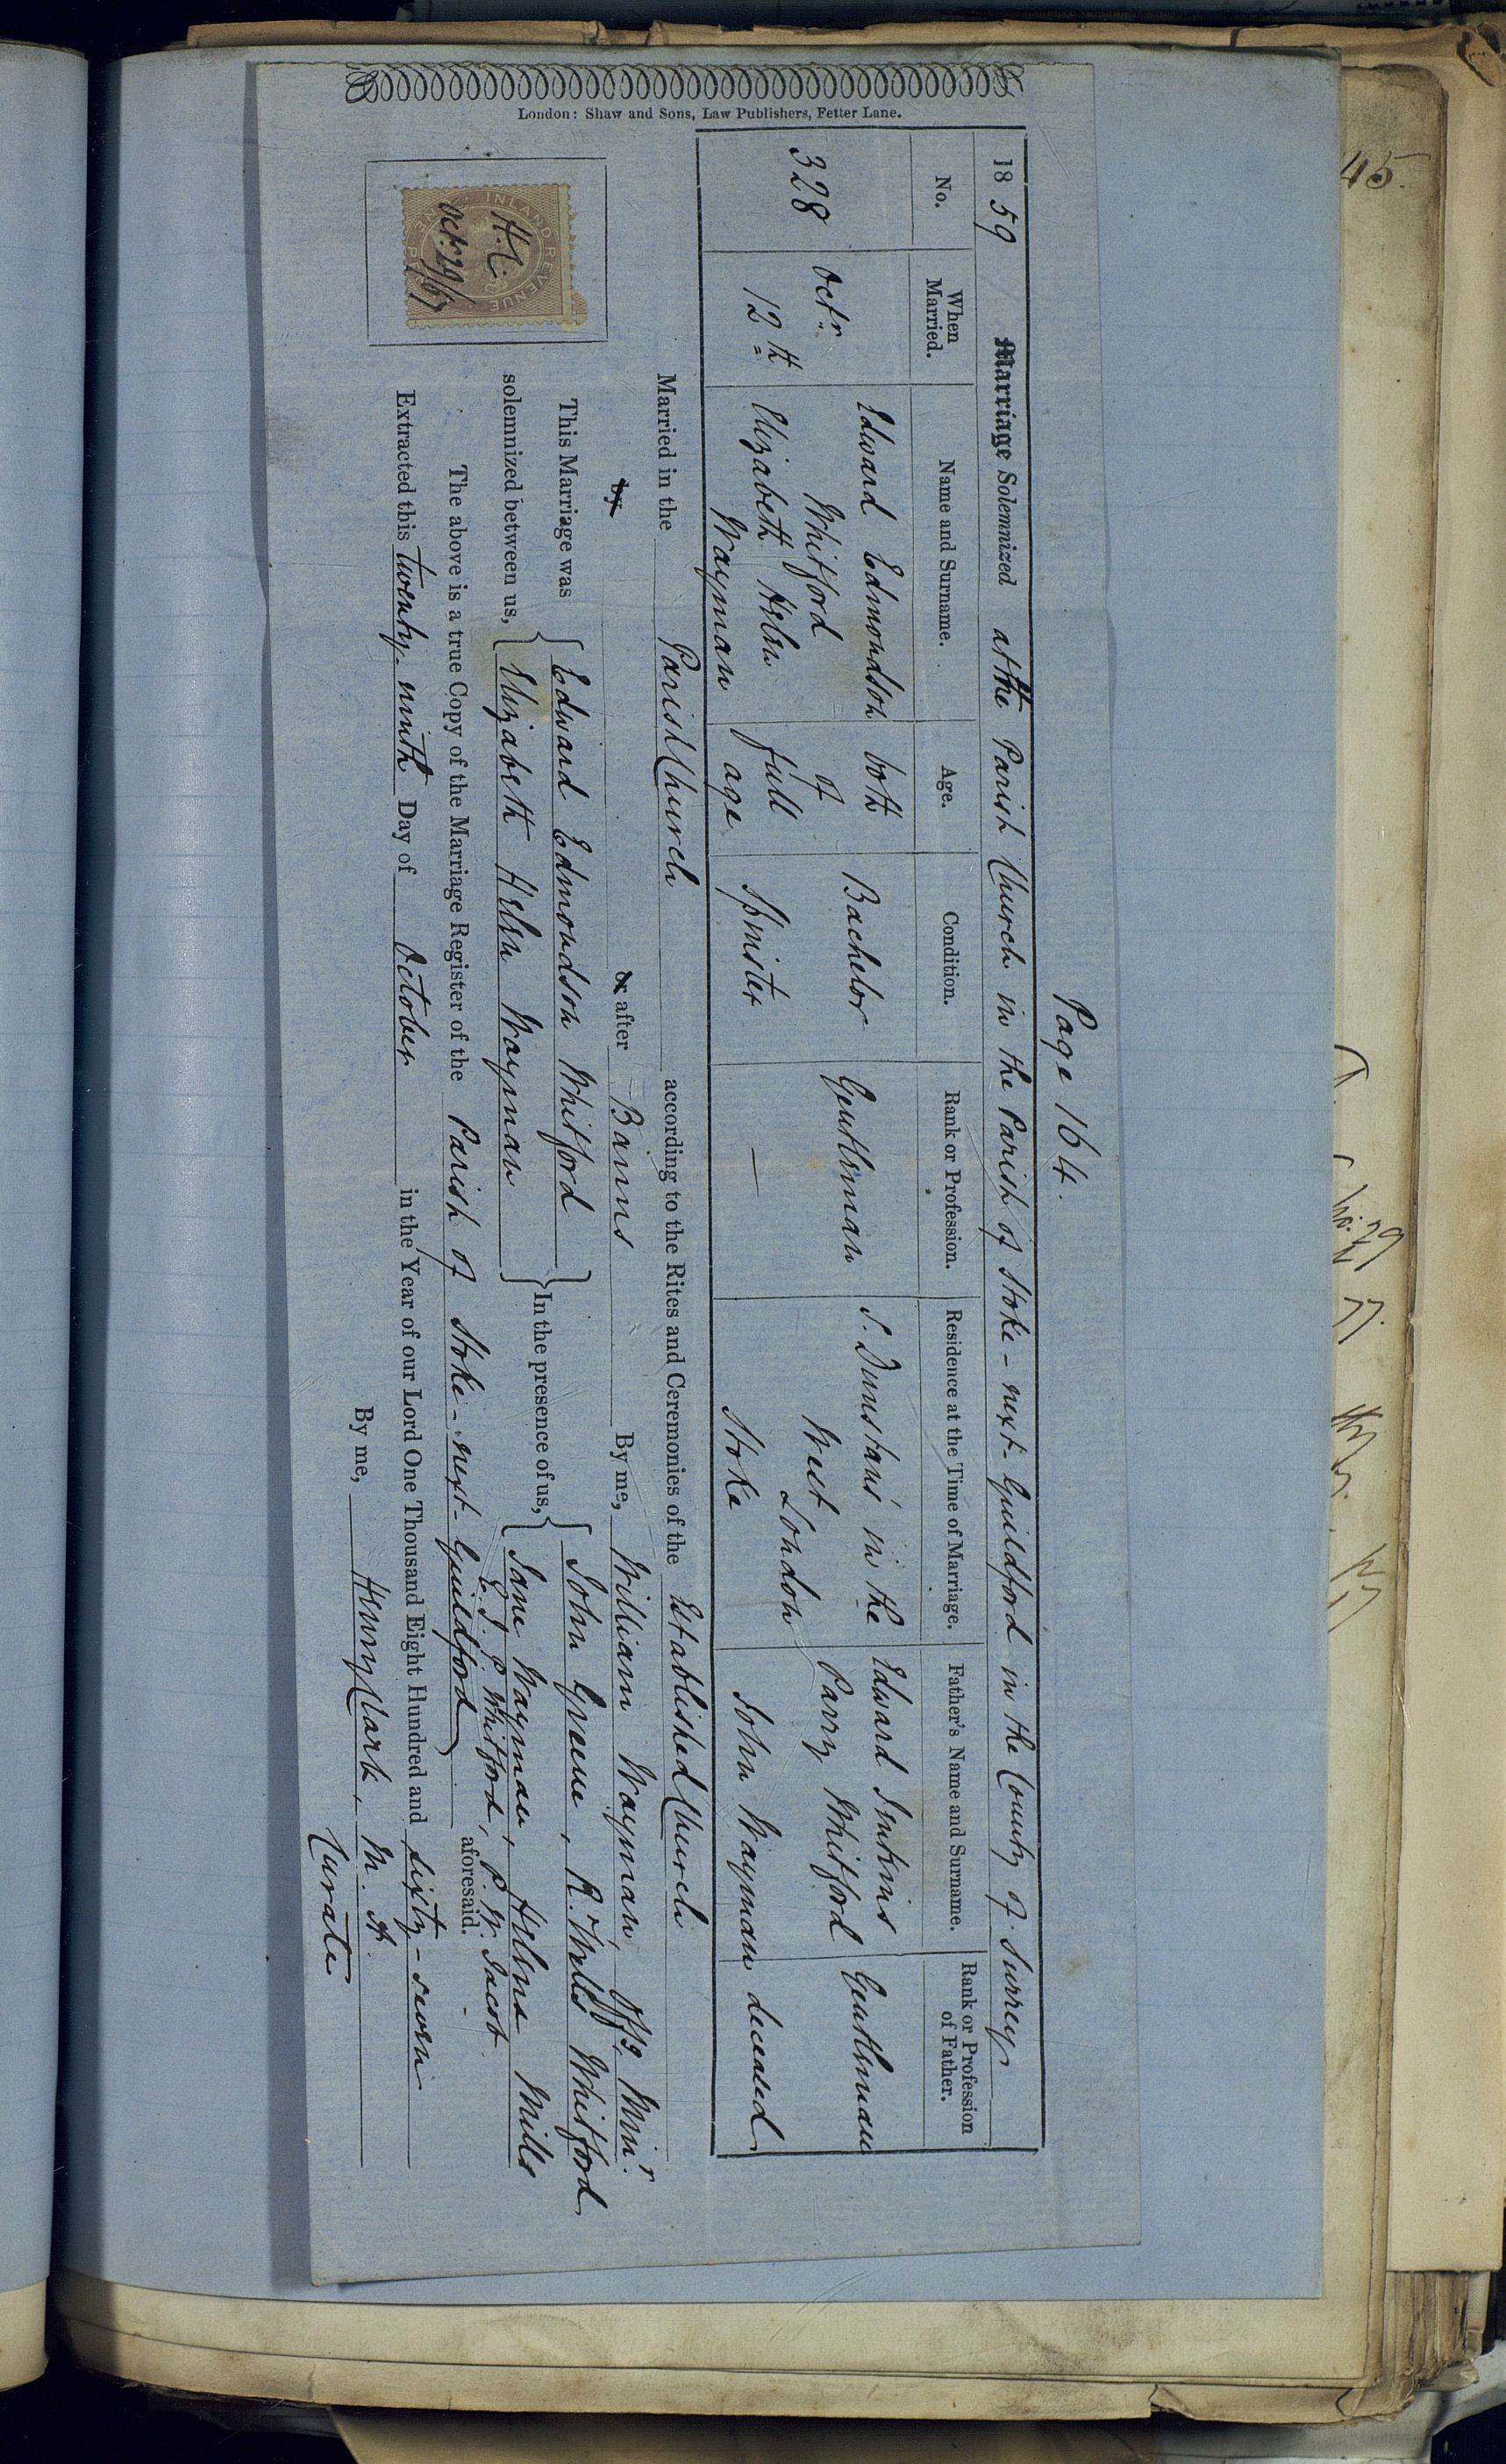 Page 164.
1859 Marriage Solemnized at the Parish Church in the Parish of Stoke-next-Guildford in the County of Surrey
No.
When Married.
Name and Surname.
Age.
Condition.
Rank or Profession.
Residence at the Time of Marriage.
Father's Name and Surname.
Rank or Profession of Father.
328
Octr.
12th
Edward Edmondson
Whitford
Elizabeth Helen
Wayman
both
of
full
age
Bachelor
Spinster
Gentleman
—
S. Dunstans' in the
West
London
Stoke
Edward Jenkins
Parry Whitford
John Wayman
Gentleman
deceased
Married in the Parish Church according to the Rites and Ceremonies of the Established Church
by or after Banns By me, William Wayman, Offg. Minr.
This Marriage was
solemnized between us,
Edward Edmondson Whitford
Elizabeth Helen Wayman
In the presence of us,
John Greene, R. Wells Whitford
Jane Wayman, Helena Mills
E. J. P. Whitford, P. W. Jacob.
The above is a true Copy of the Marriage Register of the Parish of Stoke-next-Guildford aforesaid.
Extracted this twenty-ninth Day of October in the Year of our Lord One Thousand Eight Hundred and sixty-seven
By me, Henry Clark, M. A.
Curate
INLAND REVENUE
ONE PENNY
H.C.
Oct. 29/67
London: Shaw and Sons, Law Publishers, Fetter Lane.
45.